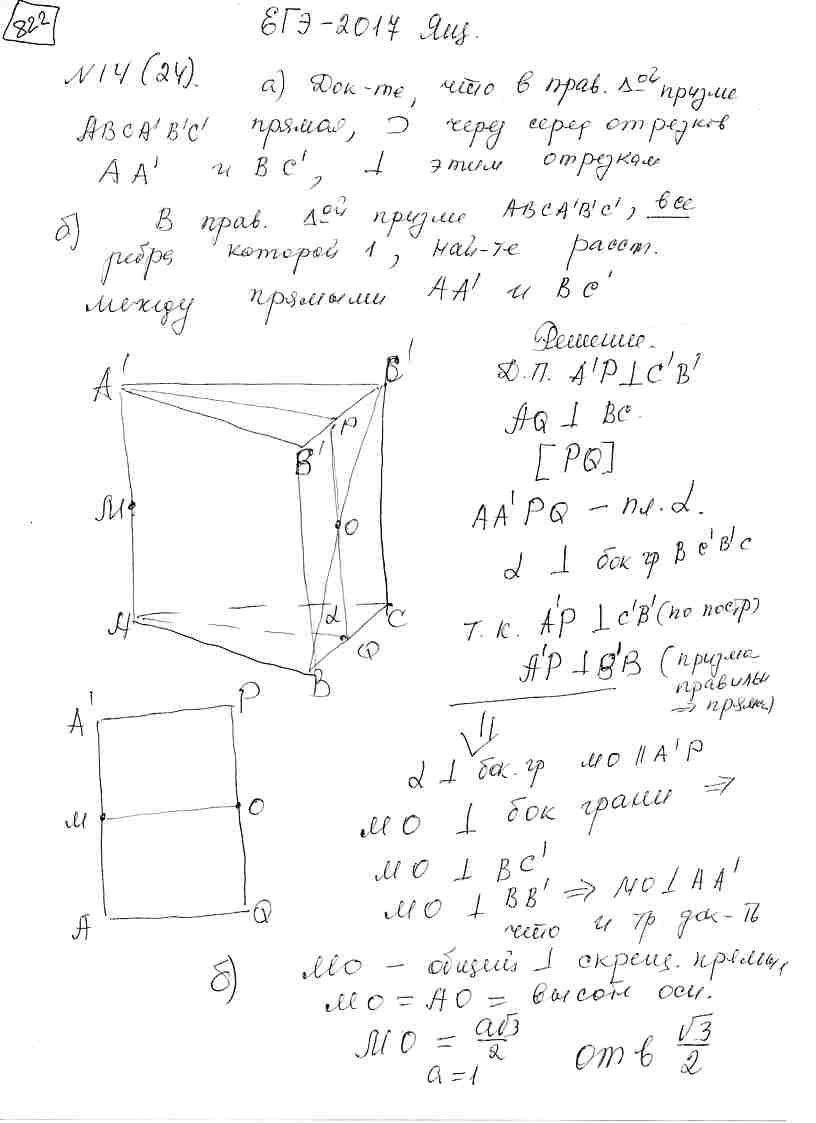 822
ЕГЭ-2017 Ящ.
N14(24). а) Док-те, что в прав. Δой призме
ABCA'B'C' прямая, ⊃ через серед отрезков
AA' и BC', ⊥ этим отрезкам
б) В прав. Δой призме ABCA'B'C', все
ребра которой 1, най-те расст.
между прямыми AA' и BC'
Решение.
Д.П. A'P⊥C'B'
AQ ⊥ BC.
[PQ]
AA'PQ – пл. α.
α ⊥ бок гр B C'B'C
т. к. A'P ⊥ C'B' (по постр)
A'P ⊥ B'B (призма
правильн
⇒ прямая)
⇓
α ⊥ бок. гр MO || A'P
MO ⊥ бок грани ⇒
MO ⊥ BC'
MO ⊥ BB' ⇒ MO ⊥ AA'
что и тр док-ть
б) MO – общий ⊥ скрещ. прямых
MO = AO = высоте осн.
MO = a√3/2
a=1
отв √3/2
A'
B'
P
B'
M
O
A
α
C
Q
B
A'
P
M
O
A
Q